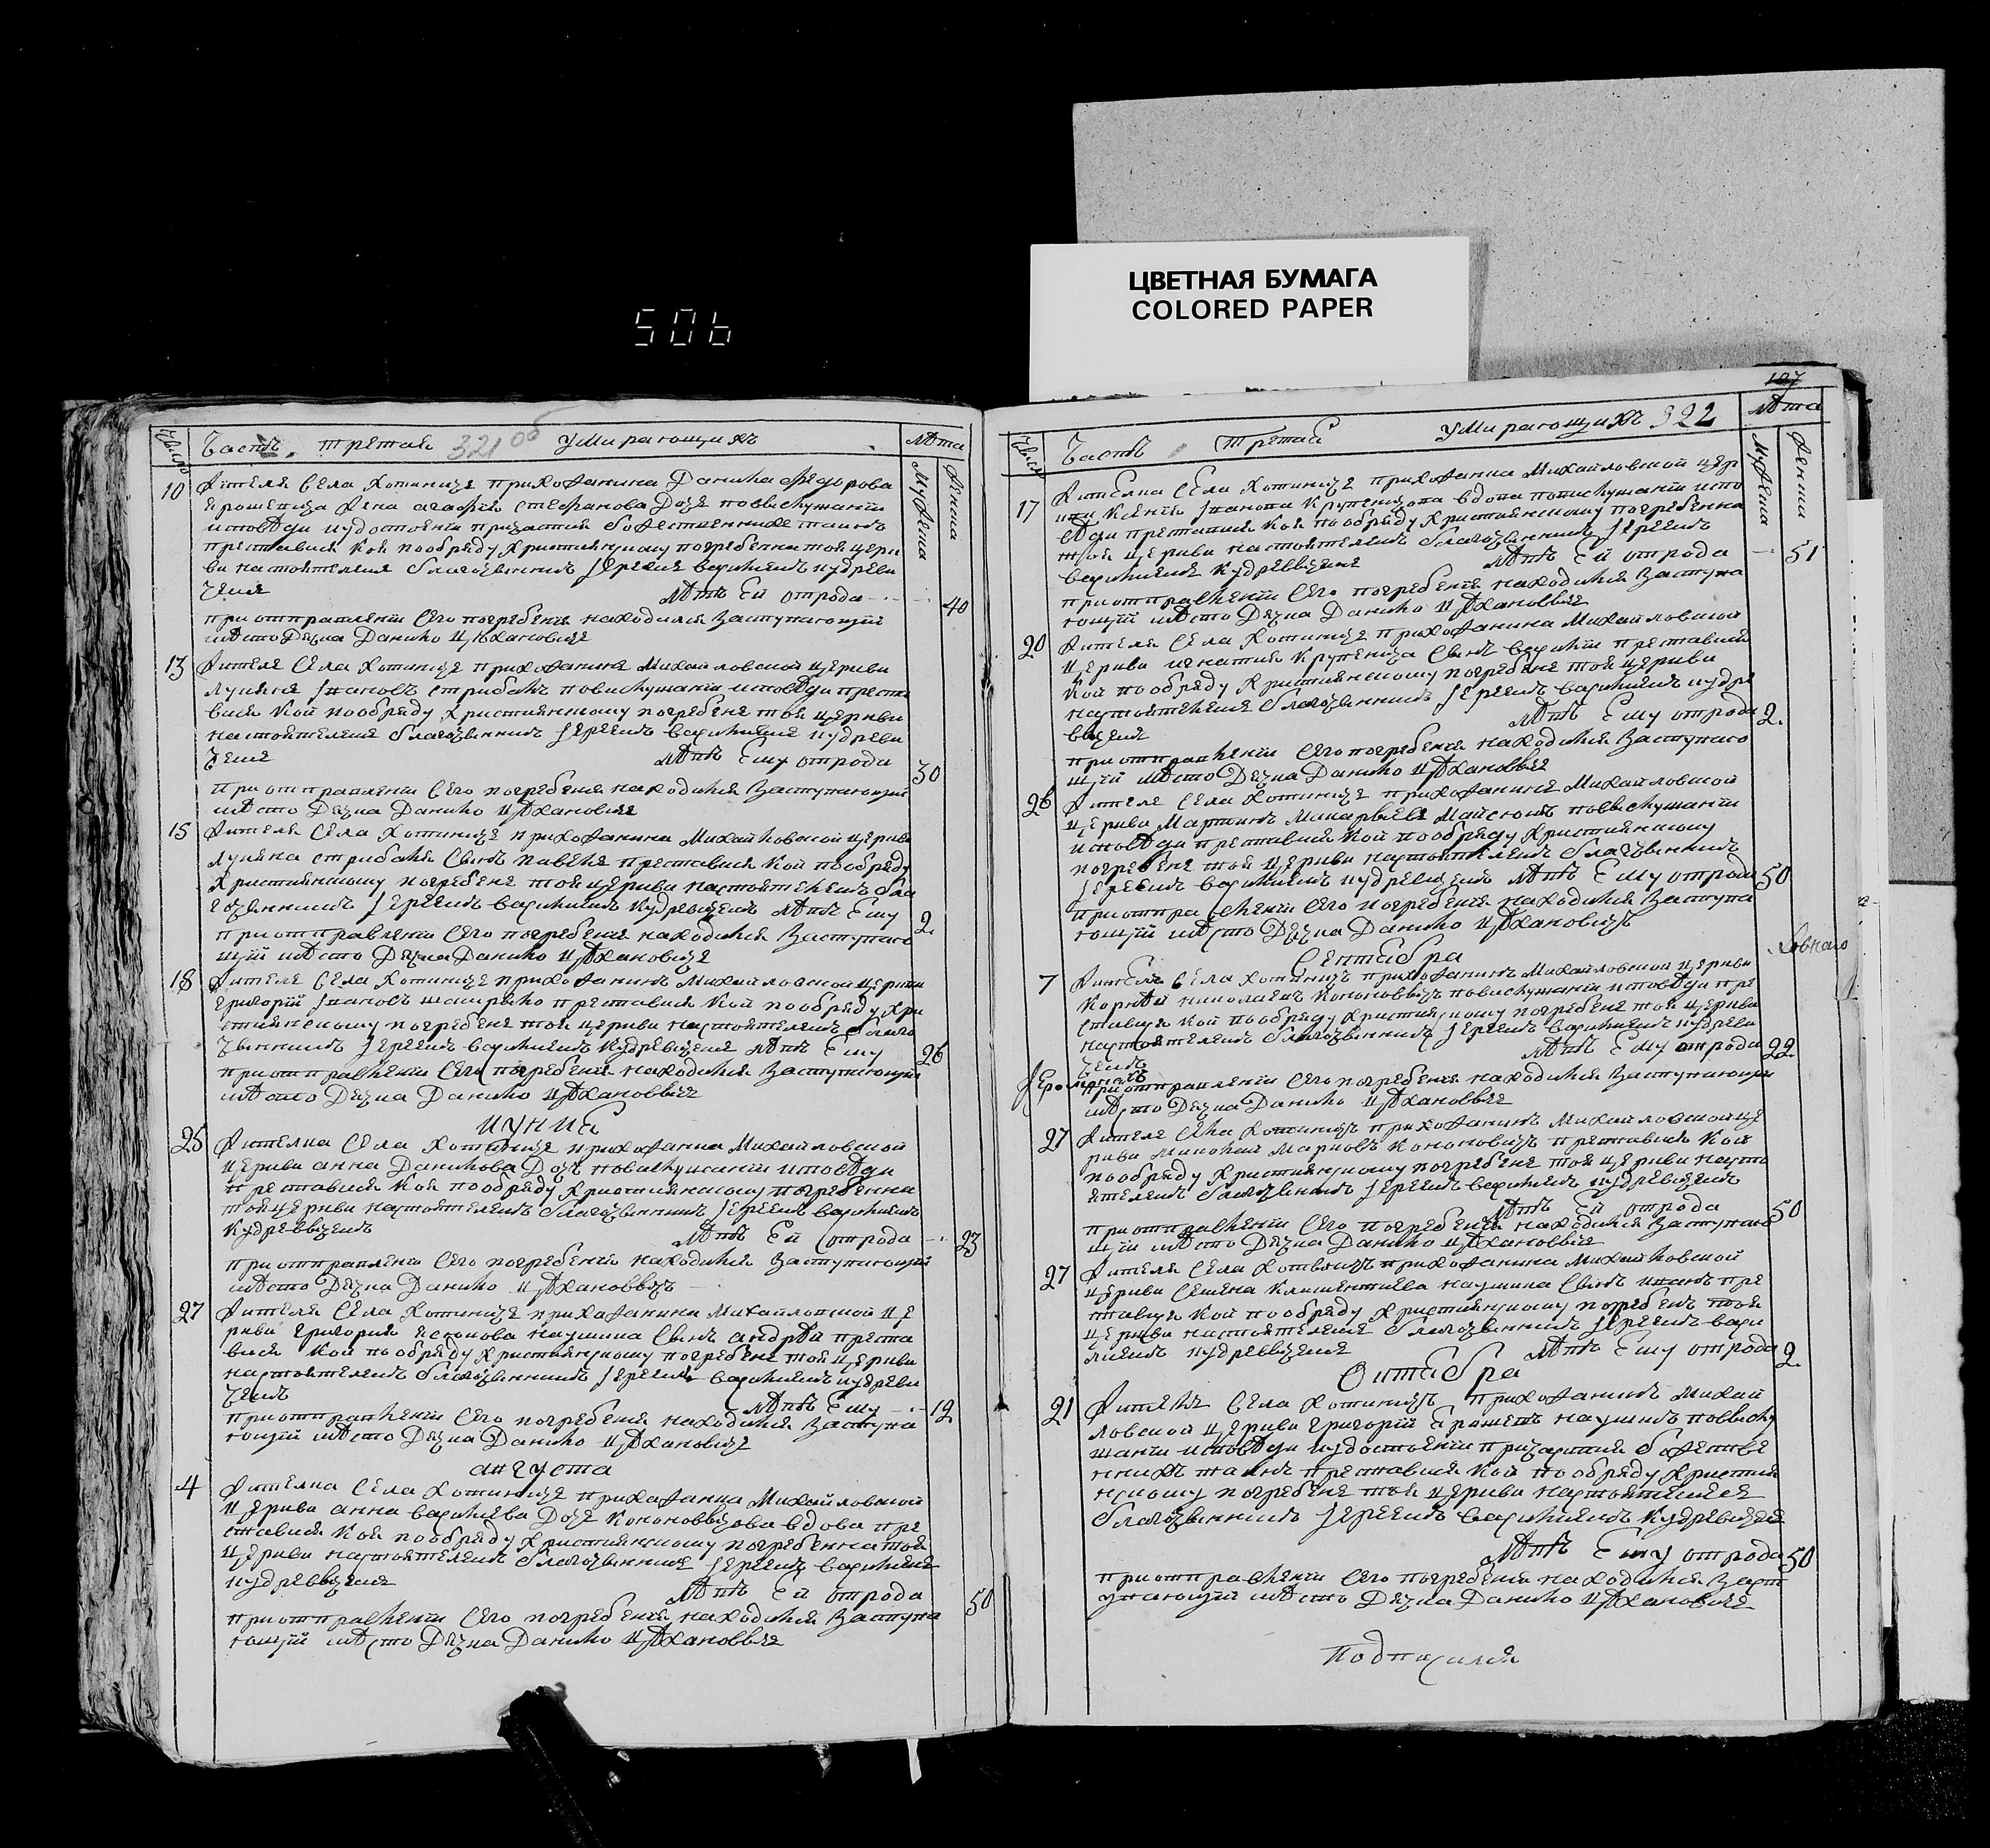 ЦВЕТНАЯ БУМАГА
COLORED PAPER
506
107
Число Часть третая 321 об умирающихъ лѣта
мужеска женска
10 Жителя села Хотиничъ прихожанина Данила Федорова
жена агафия стефанова доче повыслушании
исповѣди иудостоении причастия божественныхъ таинъ
преставися кой пообряду християнскому погребенна той церк
ви настоятелемъ благочиннымъ иереемъ василиемъ кудреви
чемъ лѣтъ Ей отрода 40
при отправлении сего погребения находился заступающий
мѣсто Дячка Данило Цѣхановичъ
13 Жителе села Хотиничъ прихожанинъ Михайловской церкви
лукянъ Ивановъ стрибакъ повислушании исповѣди преста
вися кой пообряду християнскому погребенъ той церкви
настоятелемъ благочиннымъ иереемъ василиемъ кудреви
чемъ лѣтъ Ему отрода 30
при отправлении сего погребения находился заступающий
мѣсто Дячка Данило Цѣхановичъ
15 Жителя села Хотиничъ прихожанина Михайловской церкви
лукяна стрибака сынъ павелъ преставися кой пообряду
християнскому погребенъ той церкви настоятелемъ бла
гочиннымъ иереемъ василиемъ кудревичемъ лѣтъ Ему 2
при отправлении сего погребения находился заступаю
щий мѣсто Дячка Данило Цѣхановичъ
18 Жителе села Хотиничъ прихожанинъ Михайловской церкви
григорий Ивановъ преставися кой пообряду хри
стиянскому погребенъ той церкви настоятелемъ благо
чиннымъ иереемъ василиемъ кудревичемъ лѣтъ Ему 26
при отправлении сего погребения находился заступающий
мѣсто Дячка Данило Цѣхановичъ
25 Жителка села Хотиничъ прихожанка Михайловской
церкви анна Данилова доч повислушании исповѣди
преставися кой пообряду християнскому погребенна
той церкви настоятелемъ благочиннымъ иереемъ василиемъ
кудревичемъ лѣтъ Ей отрода 23
при отправлении сего погребения находился заступающий
мѣсто Дячка Данило Цѣхановичъ
27 Жителя села Хотиничъ прихожанина Михайловской це
ркви григория наумика сынъ андрѣй преста
вися кой пообряду християнскому погребенъ той церкви
настоятелемъ благочиннымъ иереемъ василиемъ кудреви
чемъ лѣтъ Ему 12
при отправлении сего погребения находился заступа
ющий мѣсто Дячка Данило Цѣхановичъ
августа
4 Жителка села Хотиничъ прихожанка Михайловской
церкви анна василиева доче Кононовичова вдова пре
ставися кой пообряду християнскому погребенна той
церкви настоятелемъ благочиннымъ иереемъ василиемъ
кудревичемъ лѣтъ Ей отрода 50
при отправлении сего погребения находился заступа
ющий мѣсто Дячка Данило Цѣхановичъ
Число Часть третая умирающихъ 322 лѣта
мужеска женска
17 Жителка села Хотиничъ прихожанка Михайловской цер
кви Ксения Иванова вдова повислушании испо
вѣди преставися кой пообряду християнскому погребенна
той церкви настоятелемъ благочиннымъ иереемъ
василиемъ кудревичемъ лѣтъ Ей отрода 51
при отправлении сего погребения находился заступа
ющий мѣсто Дячка Данило Цѣхановичъ
20 Жителя села Хотиничъ прихожанина Михайловской
церкви игнатия сынъ василий преставися
кой пообряду християнскому погребенъ той церкви
настоятелемъ благочиннымъ иереемъ василиемъ кудре
вичемъ лѣтъ Ему отрода 2
при отправлении сего погребения находился заступаю
щий мѣсто Дячка Данило Цѣхановичъ
26 Жителе села Хотиничъ прихожанинъ Михайловской
церкви Мартинъ Макарьевъ Майсюкъ повыслушании
исповѣди преставися кой пообряду християнскому
погребенъ той церкви настоятелемъ благочиннымъ
иереемъ василиемъ кудревичемъ лѣтъ Ему отрода 50
при отправлении сего погребения находился заступа
ющий мѣсто Дячка Данило Цѣхановичъ
Сентабра
7 Жителъ села Хотиничъ прихожанинъ Михайловской церкви
Корнѣй николаевъ Кононовичъ повислушании исповѣди пре
ставися кой пообряду християнскому погребенъ той церкви
настоятелемъ благочиннымъ иереемъ василиемъ кудреви
чемъ лѣтъ Ему отрода 22
Иеромонахъ
при отправлении сего погребения находился заступающий
мѣсто Дячка Данило Цѣхановичъ
27 Жителе села Хотиничъ прихожанинъ Михайловской це
ркви Миколай Марковъ Кононовичъ преставися кой
пообряду християнскому погребенъ той церкви насто
ятелемъ благочиннымъ иереемъ василиемъ кудревичемъ
лѣтъ Ей отрода 50
при отправлении сего погребения находился заступаю
щий мѣсто Дячка Данило Цѣхановичъ
27 Жителя села Хотиничъ прихожанина Михайловской
церкви Семена Климентиева наумика сынъ иванъ пре
ставися кой пообряду християнскому погребенъ той
церкви настоятелемъ благочиннымъ иереемъ васи
лиемъ кудревичемъ лѣтъ Ему отрода 2
Октабра
21 Жителъ села Хотиничъ прихожанинъ Михай
ловской церкви григорий наумикъ повислу
шании исповѣди иудостоении причастия божестве
нныхъ таинъ преставися кой пообряду християн
скому погребенъ той церкви настоятелемъ
благочиннымъ иереемъ василиемъ кудревичемъ
лѣтъ Ему отрода 50
при отправлении сего погребения находился заст
упающий мѣсто Дячка Данило Цѣхановичъ
Подписался